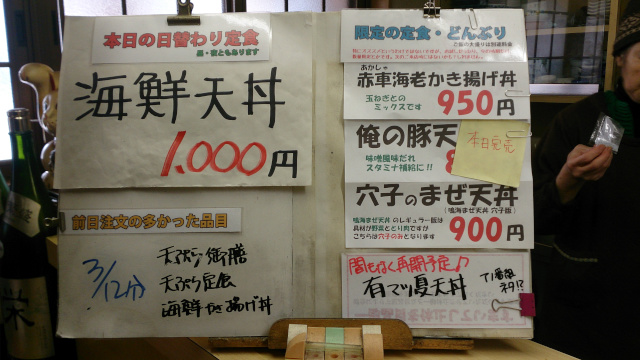 本日の日替わり定食
昼・夜ともあります
海鮮天丼
1.000円
前日注文の多かった品目
3/12分
天ぷら御膳
天ぷら定食
海鮮かき揚げ丼
限定の定食・どんぶり
ご飯の大盛りは別途料金
あかしゃ
赤車海老かき揚げ丼
玉ねぎとの
ミックスです
950円
俺の豚天
味噌風味だれ
スタミナ補給に!!
8
本日完売
穴子のまぜ天丼
(鳴海まぜ天丼 穴子版)
鳴海まぜ天丼 のレギュラー版は
具材が野菜ととり肉ですが
こちらは穴子のみとなります
900円
間もなく再開予定♪
有マツ夏天丼
ネタ!?